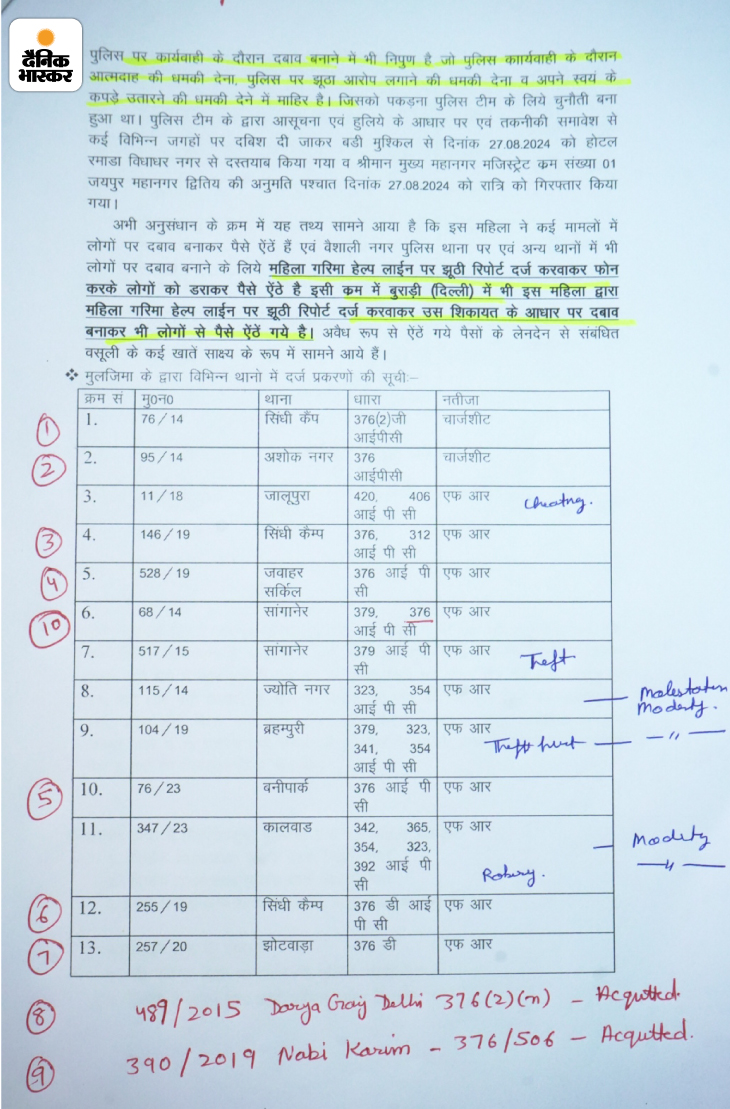 दैनिक
भास्कर
पुलिस पर कार्यवाही के दौरान दबाव बनाने में भी निपुण है जो पुलिस काार्यवाही के दौरान
आत्मदाह की धमकी देना, पुलिस पर झूठा आरोप लगाने की धमकी देना व अपने स्वयं के
कपड़े उतारने की धमकी देने में माहिर है। जिसको पकड़ना पुलिस टीम के लिये चुनौती बना
हुआ था। पुलिस टीम के द्वारा आसूचना एवं हुलिये के आधार पर एवं तकनीकी समावेश से
कई विभिन्न जगहों पर दबिश दी जाकर बडी मुश्किल से दिनांक 27.08.2024 को होटल
रमाडा विधाधर नगर से दस्तयाब किया गया व श्रीमान मुख्य महानगर मजिस्ट्रेट कम संख्या 01
जयपुर महानगर द्वितिय की अनुमति पश्चात दिनांक 27.08.2024 को रात्रि को गिरफ्तार किया
गया।
अभी अनुसंधान के क्रम में यह तथ्य सामने आया है कि इस महिला ने कई मामलों में
लोगों पर दबाव बनाकर पैसे ऐंठें हैं एवं वैशाली नगर पुलिस थाना पर एवं अन्य थानों में भी
लोगों पर दबाव बनाने के लिये महिला गरिमा हेल्प लाईन पर झूठी रिपोर्ट दर्ज करवाकर फोन
करके लोगों को डराकर पैसे ऐंठे है इसी कम में बुराड़ी (दिल्ली) में भी इस महिला द्वारा
महिला गरिमा हेल्प लाईन पर झूठी रिपोर्ट दर्ज करवाकर उस शिकायत के आधार पर दबाव
बनाकर भी लोगों से पैसे ऐंठें गये है। अवैध रूप से ऐंठे गये पैसों के लेनदेन से संबंधित
वसूली के कई खातें साक्ष्य के रूप में सामने आये हैं।
❖ मुलजिमा के द्वारा विभिन्न थानो में दर्ज प्रकरणों की सूची:-
क्रम सं मु0न0 थाना धाारा नतीजा
1 1. 76/14 सिंधी कैंप 376(2)जी चार्जशीट
आईपीसी
2 2. 95/14 अशोक नगर 376 चार्जशीट
आईपीसी
3. 11/18 जालूपुरा 420, 406 एफ आर Cheating.
आई पी सी
3 4. 146/19 सिंधी कैम्प 376, 312 एफ आर
आई पी सी
4 5. 528/19 जवाहर 376 आई पी एफ आर
सर्किल सी
10 6. 68/14 सांगानेर 379, 376 एफ आर
आई पी सी
7. 517/15 सांगानेर 379 आई पी एफ आर Theft
सी
8. 115/14 ज्योति नगर 323, 354 एफ आर — Molestation
आई पी सी Modesty.
9. 104/19 ब्रहम्पुरी 379, 323, एफ आर
341, 354 Theft hurt — —〃—
आई पी सी
5 10. 76/23 बनीपार्क 376 आई पी एफ आर
सी
11. 347/23 कालवाड 342, 365, एफ आर
354, 323, — Modesty
392 आई पी —〃—
सी Robery.
6 12. 255/19 सिंधी कैम्प 376 डी आई एफ आर
पी सी
7 13. 257/20 झोटवाड़ा 376 डी एफ आर
8 489/2015 Darya Ganj Delhi 376(2)(n) – Acqutted.
9 390/2019 Nabi Karim – 376/506 – Acqutted.